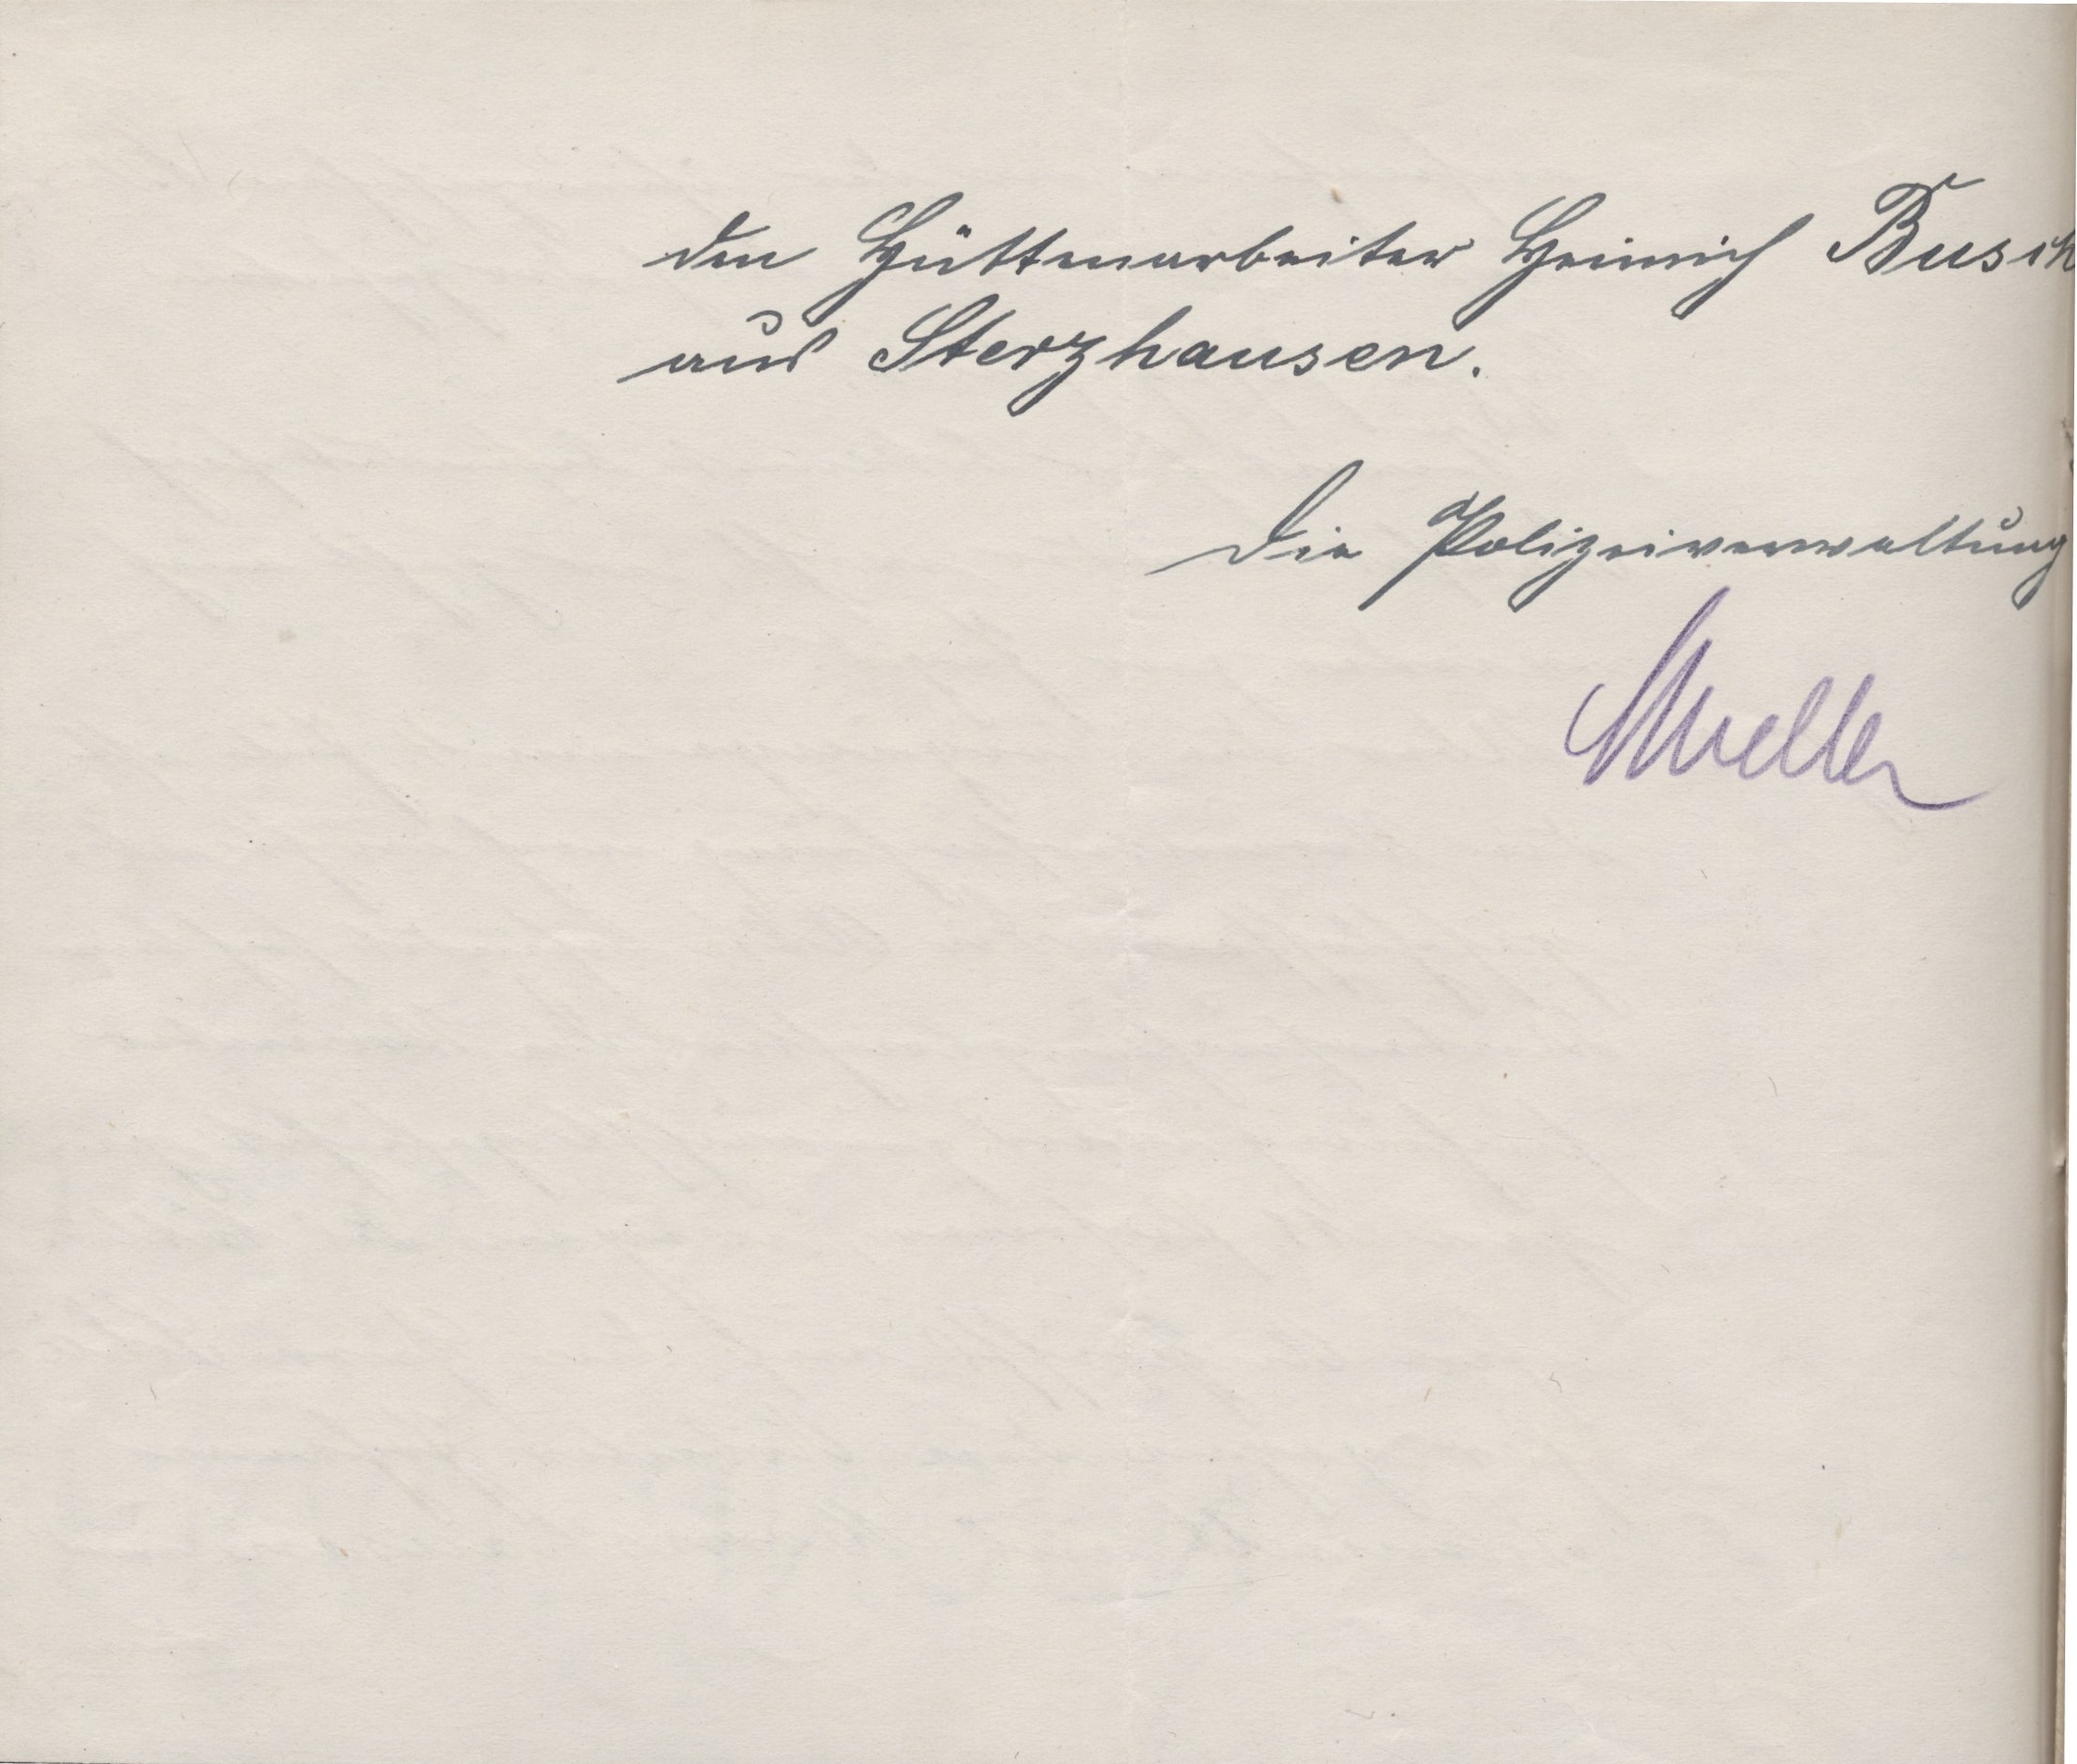 den Hüttenarbeiter Heinrich Busch
aus Sterzhausen.
Die Polizeiverwaltung
Mueller